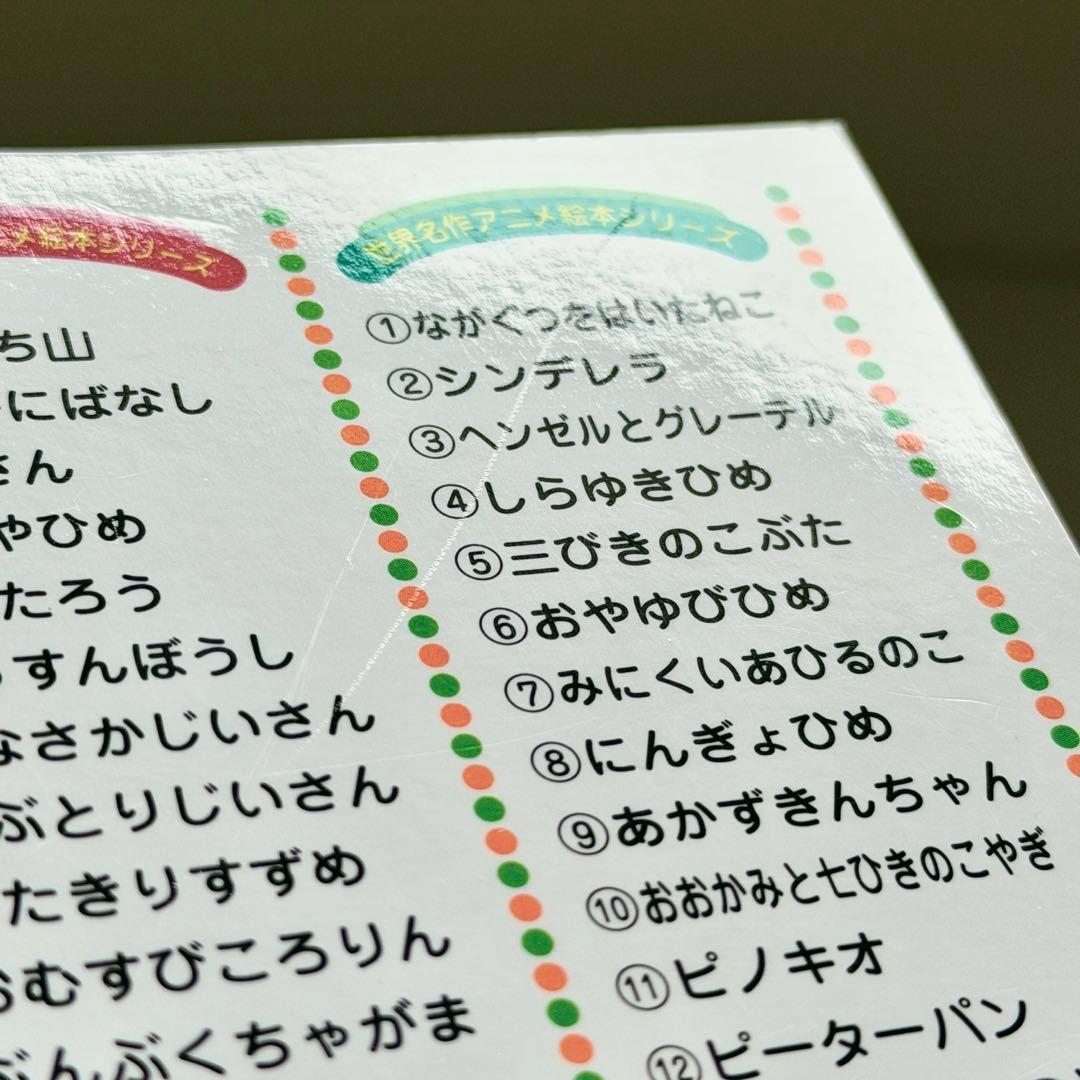 ニメ絵本シリーズ
ち山
にばなし
さん
やひめ
たろう
すんぼうし
なさかじいさん
ぶとりじいさん
たきりすずめ
おむすびころりん
ぶんぶくちゃがま
世界名作アニメ絵本シリーズ
①ながぐつをはいたねこ
②シンデレラ
③ヘンゼルとグレーテル
④しらゆきひめ
⑤三びきのこぶた
⑥おやゆびひめ
⑦みにくいあひるのこ
⑧にんぎょひめ
⑨あかずきんちゃん
⑩おおかみと七ひきのこやぎ
⑪ピノキオ
⑫ピーターパン